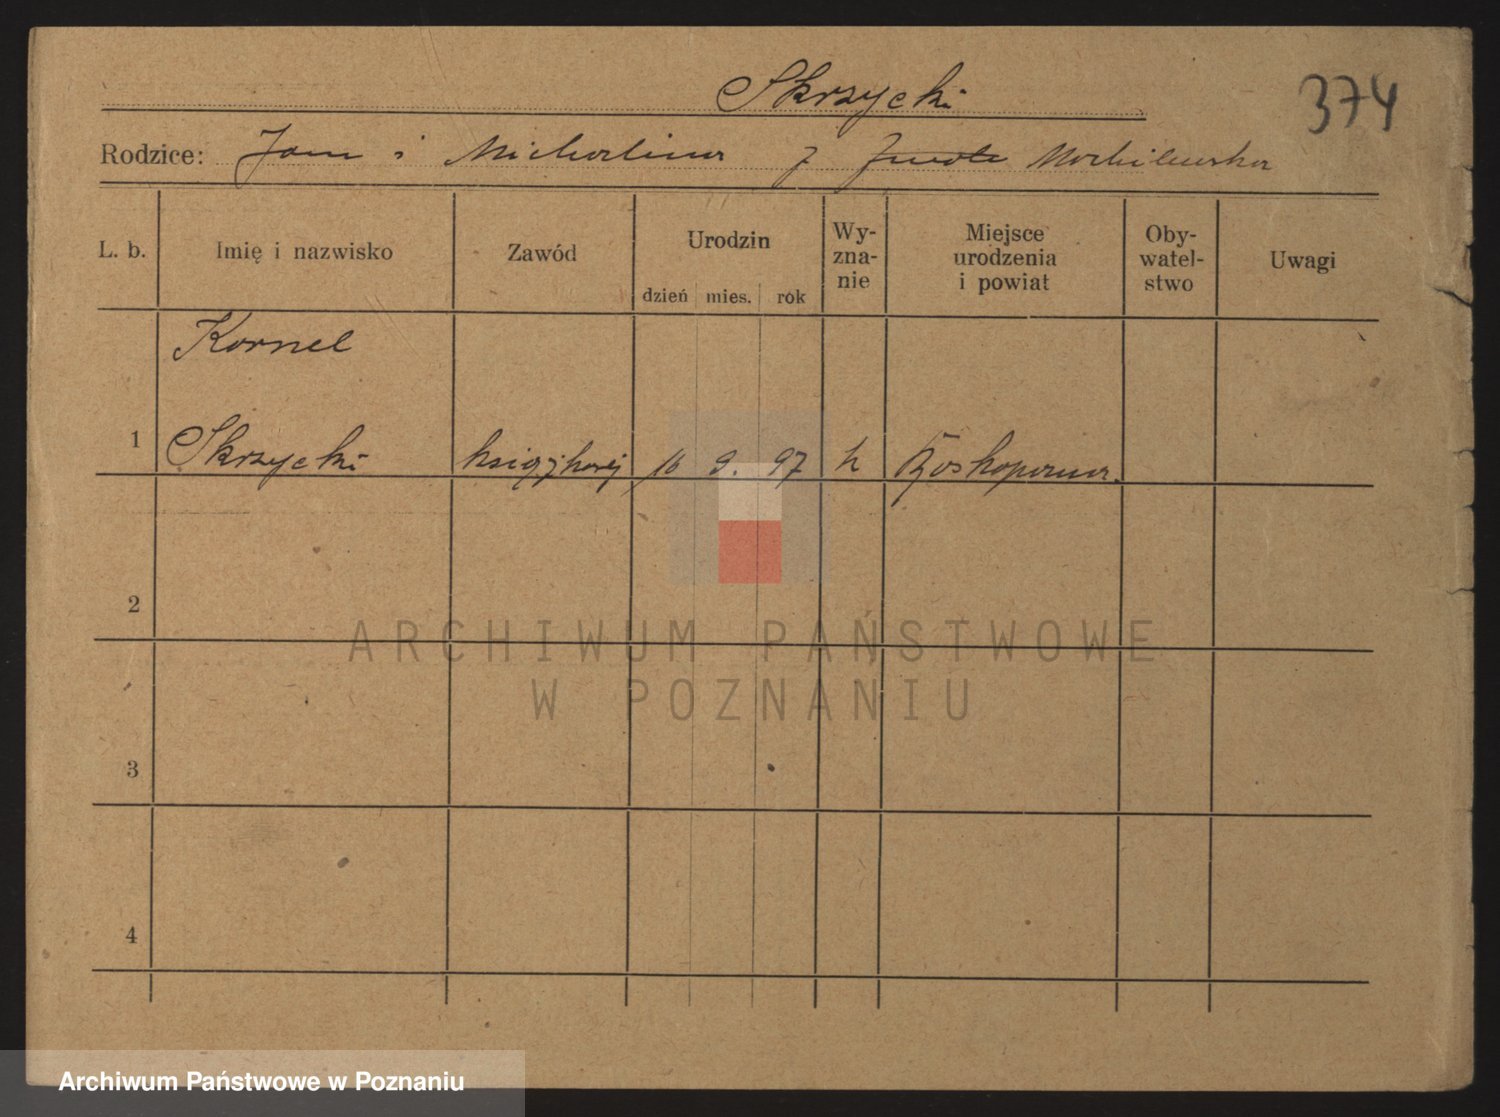 Skrzycki
374
Rodzice: Jan i Michalina z Mochilewska
L. b. Imię i nazwisko Zawód Urodzin dzień mies. rok Wy-zna-nie Miejsce urodzenia i powiat Oby-watel-stwo Uwagi
Kornel
1 Skrzycki 16 9. 97 k
2
ARCHIWUM PAŃSTWOWE
W POZNANIU
3
4
Archiwum Państwowe w Poznaniu